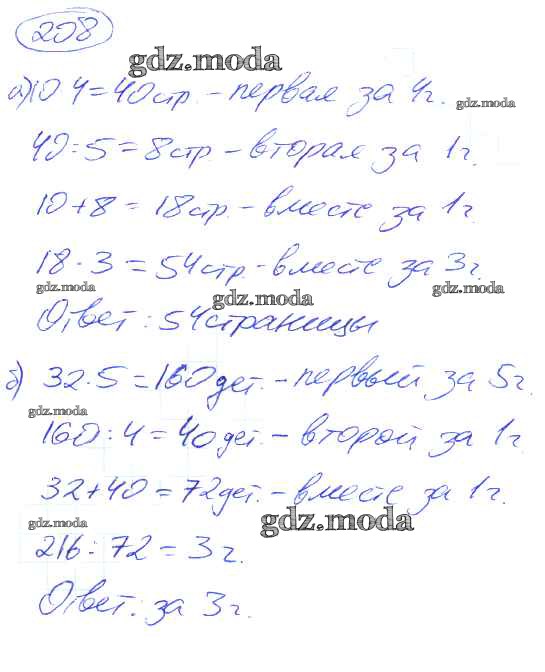 208
gdz.moda
а) 10 4 = 40 стр. - первая за 4 г.
gdz.moda
40 : 5 = 8 стр - вторая за 1 г.
10 + 8 = 18 стр. - вместе за 1 г.
18 · 3 = 54 стр. - вместе за 3 г.
gdz.moda gdz.moda gdz.moda
Ответ : 54 страницы
б) 32 · 5 = 160 дет. - первый за 5 г.
gdz.moda
160 : 4 = 40 дет. - второй за 1 г.
32 + 40 = 72 дет. - вместе за 1 г.
gdz.moda gdz.moda
216 : 72 = 3 г.
Ответ. за 3 г.